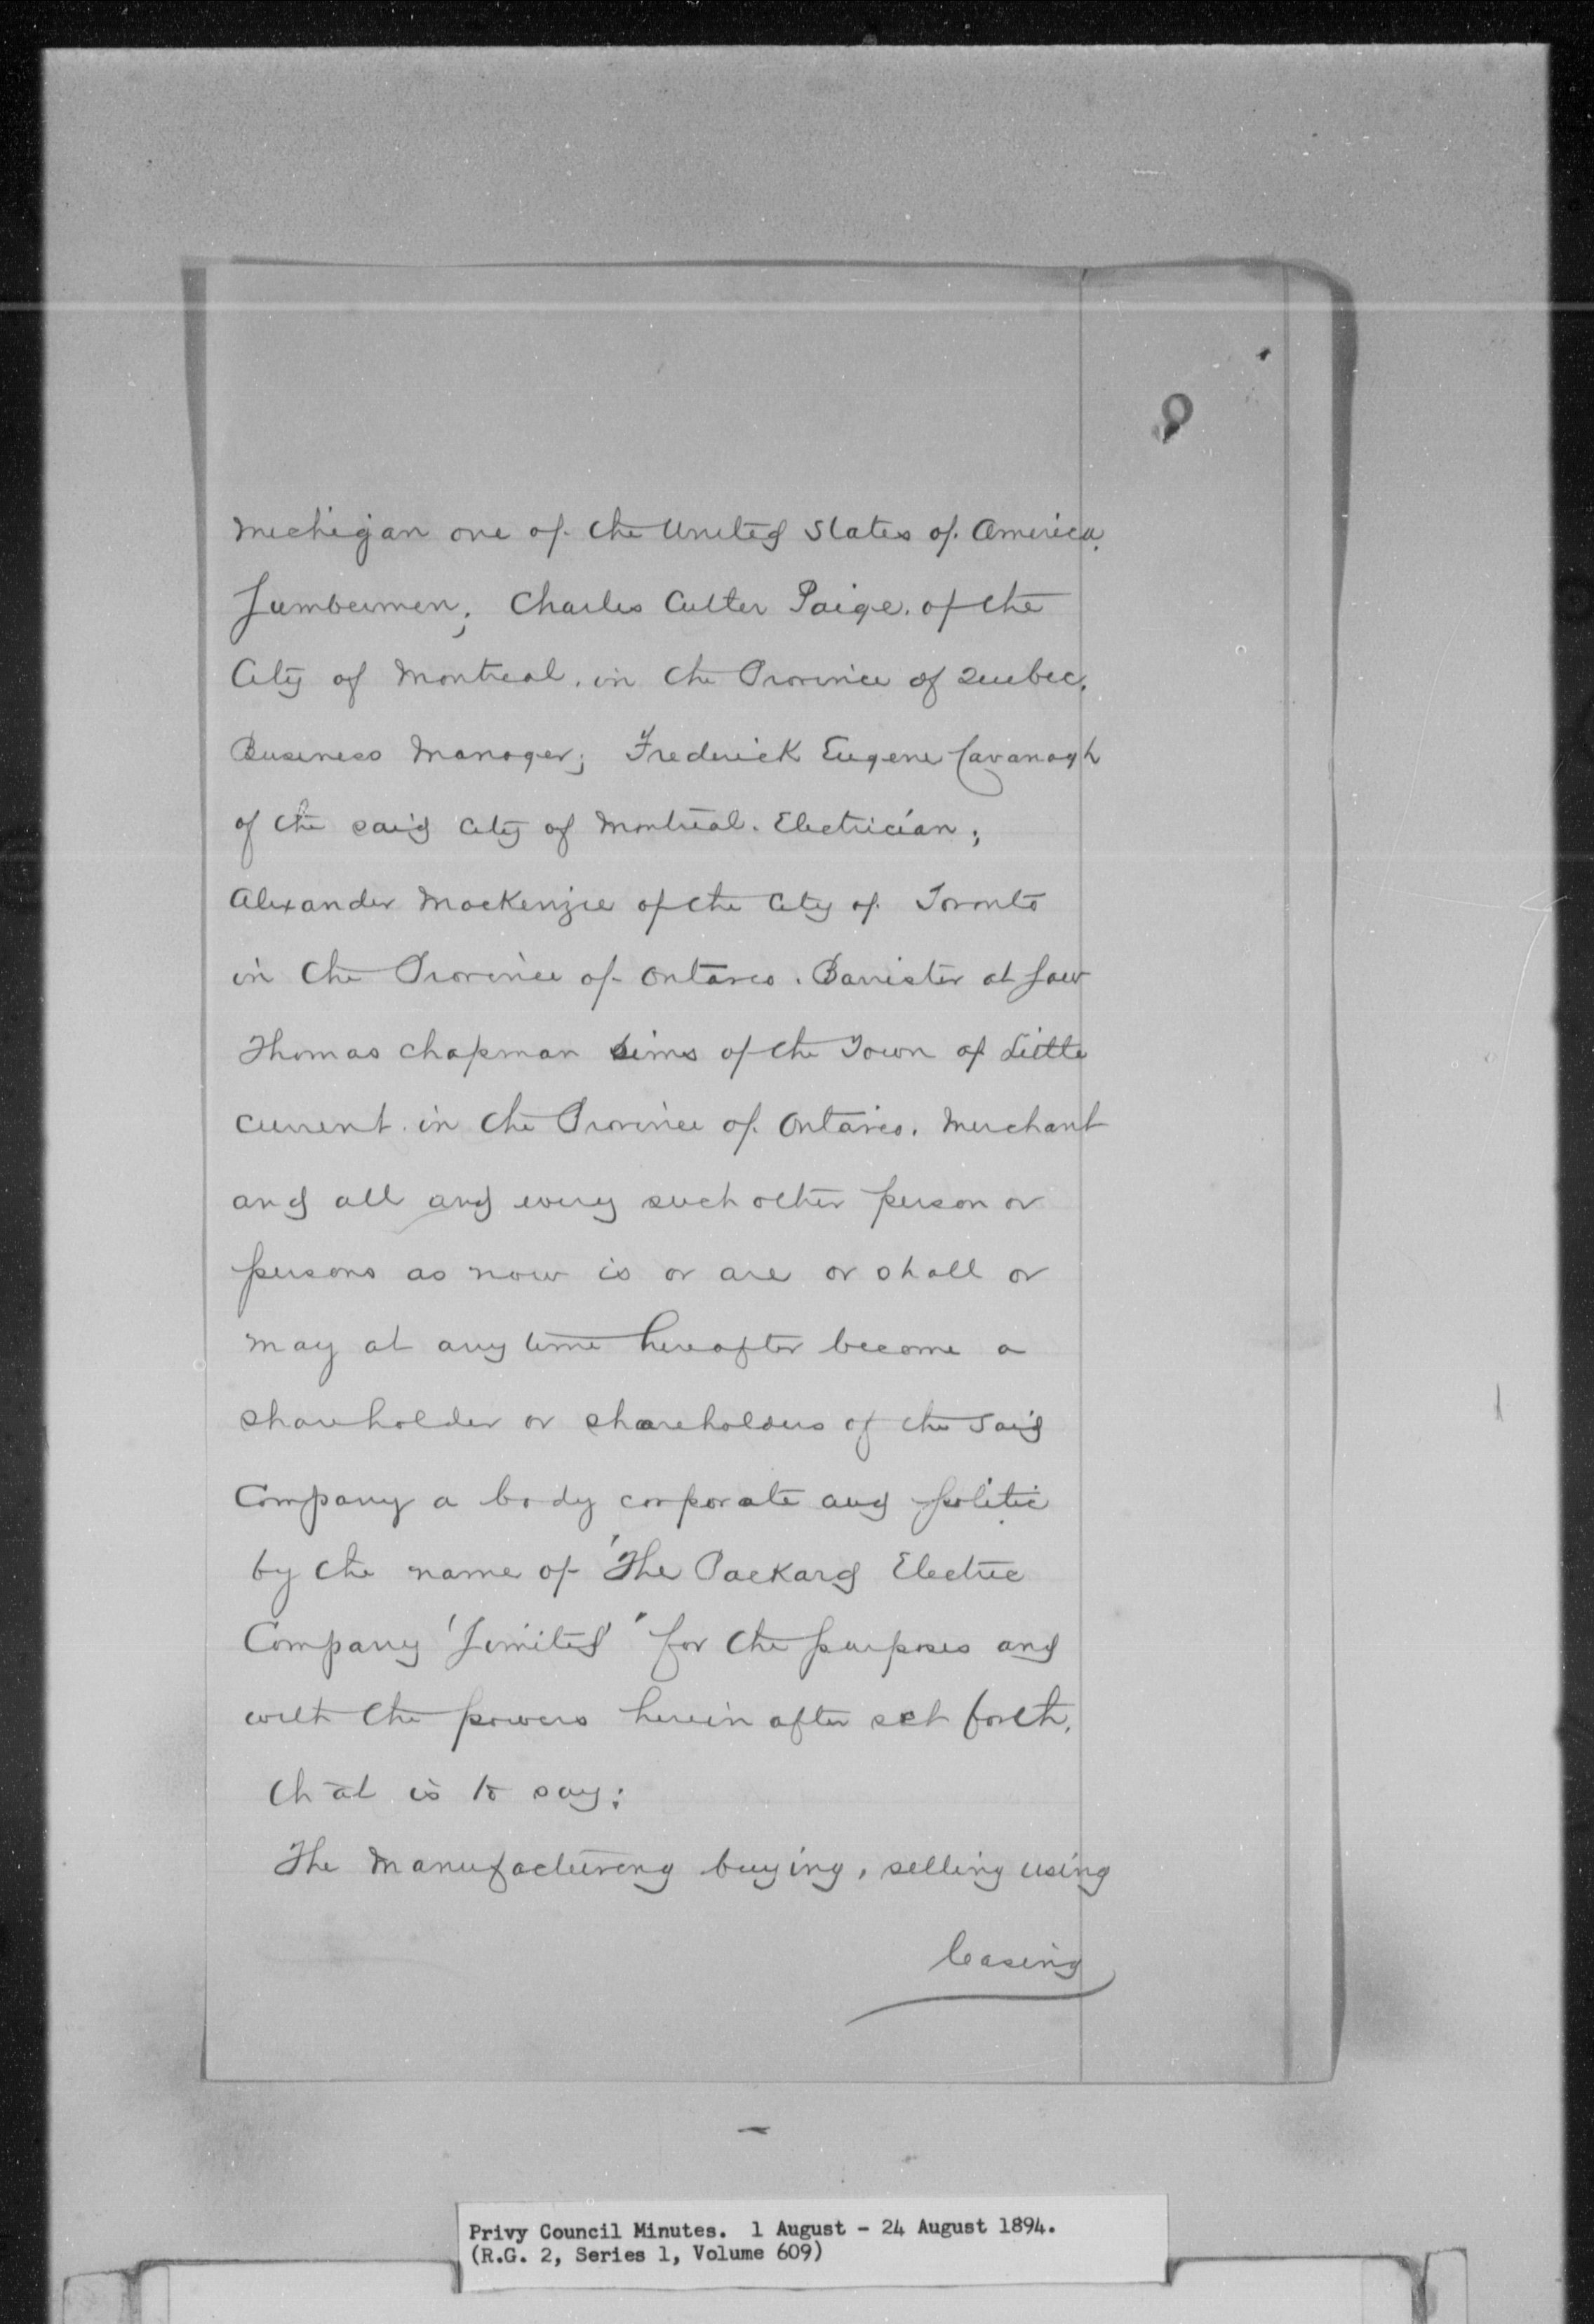 Michigan one of the United States of America.
Lumbermen; Charles Cutter Paige, of the
City of Montreal, in the Province of Quebec,
Business Manager; Frederick Eugene Cavanagh
of the said City of Montreal, Electrician;
Alexander MacKenzie of the City of Toronto
in the Province of Ontario. Barrister at Law
Thomas Chapman Sims of the Town of Little
Current in the Province of Ontario. Merchant
and all and every such other person or
persons as now is or are or shall or
may at any time hereafter become a
shareholder or shareholders of the said
Company a body corporate and politic
by the name of "The Packard Electric
Company 'Limited'" for the purposes and
with the powers herein after set forth,
that is to say:
The manufacturing buying, selling using
leasing
Privy Council Minutes. 1 August - 24 August 1894.
(R.G. 2, Series 1, Volume 609)